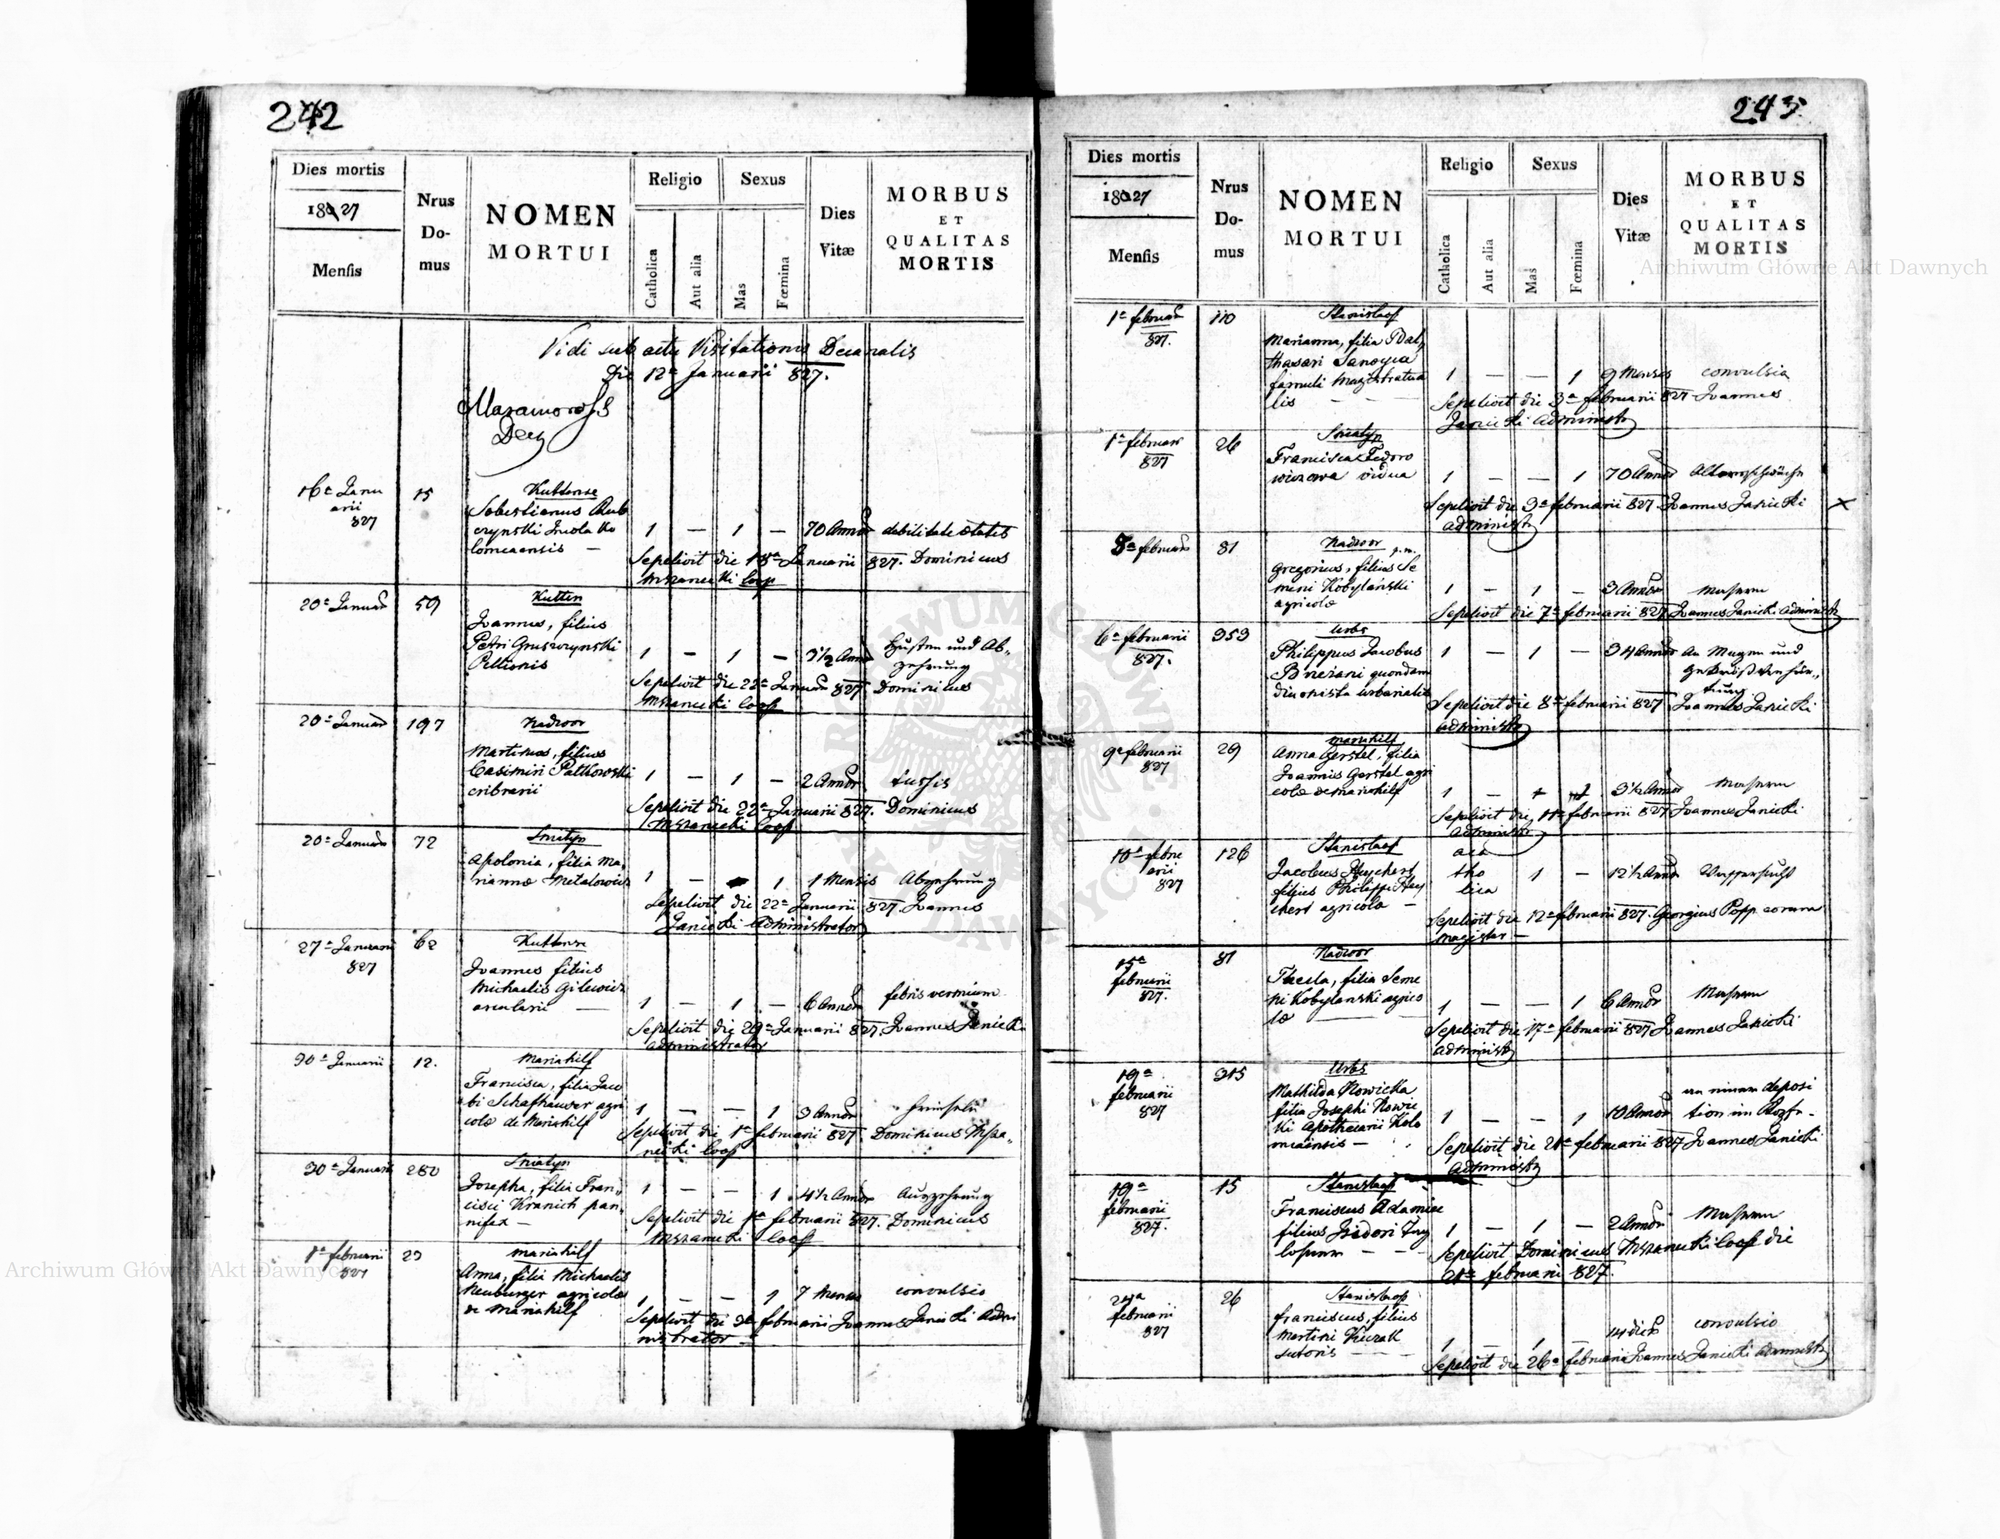 242
Dies mortis
1827
Mensis
Nrus
Do-
mus
NOMEN
MORTUI
Religio
Catholica
Aut alia
Sexus
Mas
Fœmina
Dies
Vitæ
MORBUS
ET
QUALITAS
MORTIS
Vidi sub actu Visitationis Decanalis
Die 12a Januarii 827.
16a Janu
arii
827
15
Kuttense
Sebestianus Rub
czynski Incola Ko
lomeaensis —
1 — 1 — 70 Annor debilitate etatis
Sepelivit die 18a Januarii 827. Dominicus
Mszanecki Coop
20a Januar
59
Kutten
Joannes, filius
Petri Gruszczynski
Pellionis
1 — 1 — 3½ Anno Husten und Ab-
zehrung
Sepelivit die 22a Januar 827. Dominicus
Mszanecki Coop
20a Januar
197
Nadwor
Martinus, filius
Casimiri Patkowski
cribrarii
1 — 1 — 2 Annor tussis
Sepelivit die 22a Januarii 827. Dominicus
Mszanecki Coop
20a Januar
72
Sniatyn
Apolonia, filia Ma-
rianna Metalowicz
1 — 1 1 Mensis Abzehrung
Sepelivit die 22a Januarii 827. Joannes
Janicki Administrator
27a Januarii
827
62
Kuttense
Joannes filius
Michaelis Gilewicz
arcularii —
1 — 1 — 6 Annor febris vermium
Sepelivit die 29a Januarii 827. Joannes Janicki
administrator
30a Januarii
12.
Mariahilf
Francisca, filia Jaco
bi Schafhauser agri
colæ de Mariahilf
1 — — 1 3 Annor
Sepelivit die 1a februarii 827. Dominicus Msza-
necki Coop
30a Januarii
280
Sniatyn
Josepha, filia Fran-
cisci Kranich pan-
nifex —
1 — — 1 4½ Annor Auszehrung
Sepelivit die 1a februarii 827. Dominicus
Mszanecki Coop
1a februarii
827
23
Mariahilf
Anna, filia Michaelis
Neuburger agricolæ
de Mariahilf
1 — — 1 7 Mense convulsio
Sepelivit die 3a februarii Joannes Janicki Admi
nistrator —
243
Dies mortis
1827
Mensis
Nrus
Do-
mus
NOMEN
MORTUI
Religio
Catholica
Aut alia
Sexus
Mas
Fœmina
Dies
Vitæ
MORBUS
ET
QUALITAS
MORTIS
1a februar
827.
110
Stanislaop
Marianna, filia Bal
thasari Sanoyca
famuli Magistratua
lis — —
1 — — 1 9 Menses convulsia
Sepelivit die 3a februarii 827 Joannes
Janicki Administr
1a februar
827
26
Sniatyn
Francisca Fedoro
wiczowa vidua
1 — — 1 70 Annor Altersschwäche
Sepelivit die 3a februarii 827. Joannes Janicki
administr
X
5a februar
81
Nadwor
Gregorius, filius Se
meni Kobylański
agricolæ
1 — 1 — 3 Annor Masern
Sepelivit die 7a februarii 827 Joannes Janicki administr
6a februarii
827.
353
Urbs
Philippus Jacobus
Bniezani quondam
diurnista urbarialis
1 — 1 — 34 Annor An Magen und
Sepelivit die 8a februarii 827 Joannes Janicki
administr
9a februarii
827
29
Mariahilf
Anna Gerstel, filia
Joannis Gerstel agri
colæ de Mariahilf
1 — 1 3½ Annor Masern
Sepelivit die 11a februarii 827 Joannes Janicki
administr
10a febru
arii
827
126
Stanislaop
Jacobus Heychert
filius Philippi Hey
chert agricola —
aca
tho
lica
1 — 12½ Annor Wassersucht
Sepelivit die 12a februarii 827. Georgius Popp eorum
magister —
15a
februarii
827.
81
Nadwor
Thecla, filia Seme
ni Kobylanski agrico
læ
1 — — 1 6 Annor Masern
Sepelivit die 17a februarii 827 Joannes Janicki
administr
19a
februarii
827
315
Urbs
Mathilda Nowicka
filia Josephi Nowic
ki Apothecarii Kolo
meaensis —
1 — — 1 10 Annor
Sepelivit die 21a februarii 827 Joannes Janicki
administr
19a
februarii
827.
15
Stanislaop
Franciscus Adamiec
filius Isidori Inq
1 — 1 — 2 Annor Masern
Sepelivit Dominicus Mszanecki Coop die
21a februarii 827.
24a
februarii
827
26
Stanislaop
franciscus, filius
Martini Kuczak
sutoris — —
1 — 1 — 14 dies convulsio
Sepelivit die 26a februarii Joannes Janicki administr
Archiwum Główne Akt Dawnych
Archiwum Główne Akt Dawnych
ARCHIWUM GŁÓWNE AKT DAWNYCH